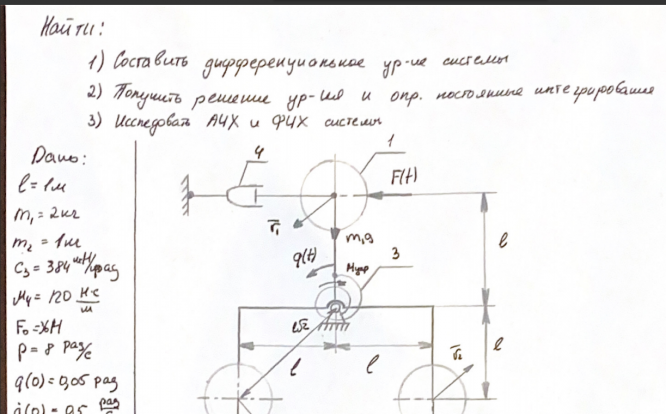 Найти:
1) Составить дифференциальное ур-ие системы
2) Получить решение ур-ия и опр. постоянные интегрирования
3) Исследовать АЧХ и ФЧХ системы
Дано:
l = 1 м
m₁ = 2 кг
m₂ = 1 кг
C₃ = 384 Н/рад
μ₄ = 120 Н·с/м
F₀ = Н
p = 8 рад/с
q(0) = 0,05 рад
q̇(0) = 0,5 рад
4
1
F(t)
r̄₁
m₁g
l
q(t)
Mупр
3
l√2
l
l
l
r̄₂